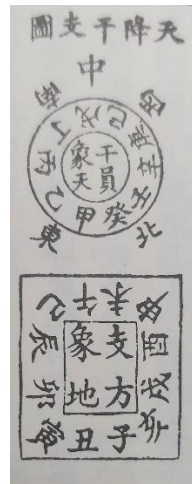 天降干支圖
中
東南西北
甲乙丙丁戊己庚辛壬癸
干員
象天
子丑寅卯辰巳午未申酉戌亥
支方
象地